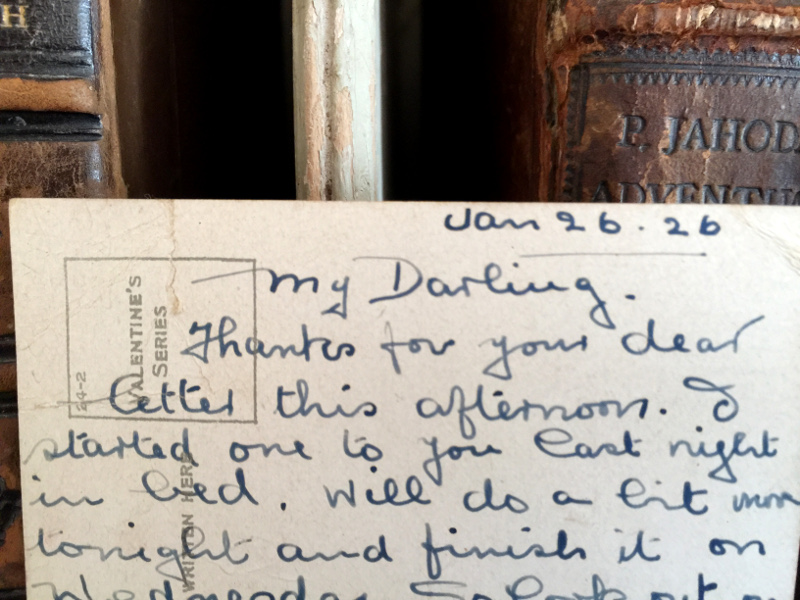 H
P. JAHODA
Jan 26. 26
My Darling.
Thanks for your dear
letter this afternoon. I
started one to you last night
in bed. Will do a bit more
tonight and finish it on
Wednesday. So look out
VALENTINE'S
SERIES
24-2
WRITTEN HERE